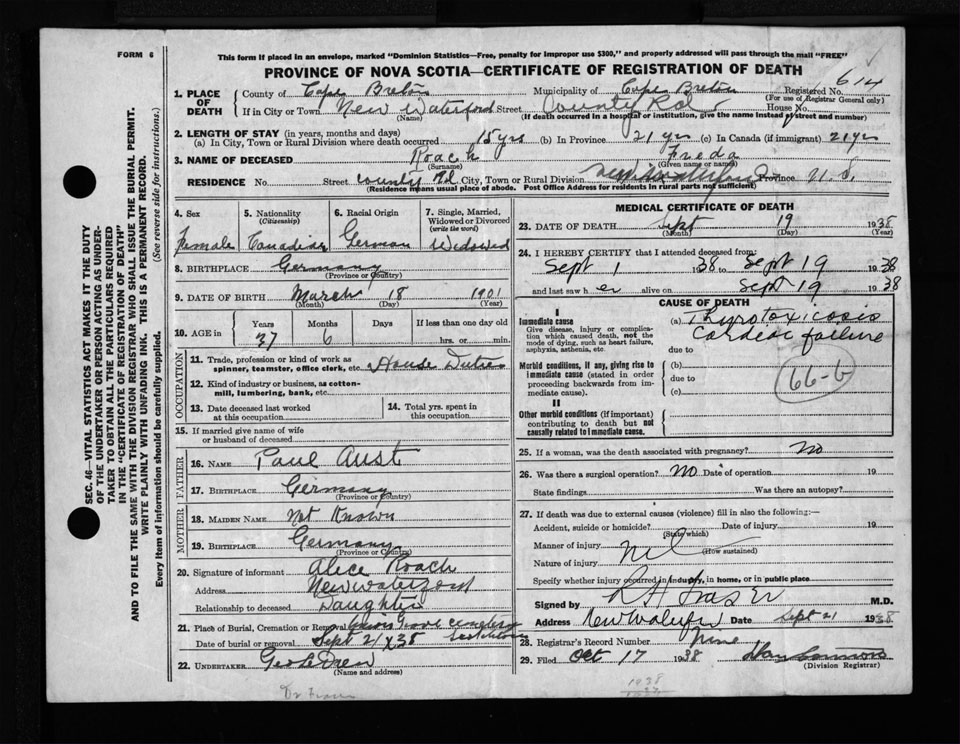 FORM 6
This form if placed in an envelope, marked "Dominion Statistics—Free, penalty for improper use $300," and properly addressed will pass through the mail "FREE"
PROVINCE OF NOVA SCOTIA—CERTIFICATE OF REGISTRATION OF DEATH
614
1. PLACE OF DEATH
County of Cape Breton Municipality of Cape Breton Registered No.
(For use of Registrar General only)
If in City or Town New Waterford Street County Rd House No.
(Name) (If death occurred in a hospital or institution, give the name instead of street and number)
2. LENGTH OF STAY (in years, months and days)
(a) In City, Town or Rural Division where death occurred 15 yrs (b) In Province 21 yr (c) In Canada (if immigrant) 21 yr
3. NAME OF DECEASED Roach Freda
(Surname) (Given name or names)
RESIDENCE No. Street County Rd City, Town or Rural Division Province
(Residence means usual place of abode. Post Office Address for residents in rural parts not sufficient)
4. Sex Female
5. Nationality (Citizenship) Canadian
6. Racial Origin German
7. Single, Married, Widowed or Divorced (write the word) Widowed
8. BIRTHPLACE Germany
(Province or Country)
9. DATE OF BIRTH March 18 1901
(Month) (Day) (Year)
10. AGE in Years Months Days If less than one day old
37 6 hrs. or min.
OCCUPATION
11. Trade, profession or kind of work as spinner, teamster, office clerk, etc. House Duties
12. Kind of industry or business, as cotton-mill, lumbering, bank, etc.
13. Date deceased last worked at this occupation
14. Total yrs. spent in this occupation
15. If married give name of wife or husband of deceased
FATHER
16. NAME Paul Aust
17. BIRTHPLACE Germany
(Province or Country)
MOTHER
18. MAIDEN NAME Not Known
19. BIRTHPLACE Germany
(Province or Country)
20. Signature of informant Alice Roach
Address New Waterford
Relationship to deceased Daughter
21. Place of Burial, Cremation or Removal
Date of burial or removal Sept 21 38
22. UNDERTAKER
(Name and address)
MEDICAL CERTIFICATE OF DEATH
23. DATE OF DEATH Sept 19 1938
(Month) (Day) (Year)
24. I HEREBY CERTIFY that I attended deceased from:
Sept 1 1938 to Sept 19 1938
and last saw h er alive on Sept 19 1938
CAUSE OF DEATH
I
Immediate cause
Give disease, injury or complication which caused death, not the mode of dying, such as heart failure, asphyxia, asthenia, etc.
(a) Thyrotoxicosis
Cardiac failure
due to
Morbid conditions, if any, giving rise to immediate cause (stated in order proceeding backwards from immediate cause).
(b)
due to
(c)
66-b
II
Other morbid conditions (if important) contributing to death but not causally related to immediate cause.
25. If a woman, was the death associated with pregnancy? No
26. Was there a surgical operation? No Date of operation 19
State findings Was there an autopsy?
27. If death was due to external causes (violence) fill in also the following:—
Accident, suicide or homicide? Date of injury 19
(State which)
Manner of injury Nil
(How sustained)
Nature of injury
Specify whether injury occurred in industry, in home, or in public place
Signed by R H Fraser M.D.
Address New Waterford Date Sept 21 1938
28. Registrar's Record Number Nine
29. Filed Oct 17 1938
(Division Registrar)
SEC. 46—VITAL STATISTICS ACT MAKES IT THE DUTY
OF THE UNDERTAKER OR PERSON ACTING AS UNDERTAKER
TO OBTAIN ALL THE PARTICULARS REQUIRED
IN THE "CERTIFICATE OF REGISTRATION OF DEATH"
AND TO FILE THE SAME WITH THE DIVISION REGISTRAR WHO SHALL ISSUE THE BURIAL PERMIT.
WRITE PLAINLY WITH UNFADING INK. THIS IS A PERMANENT RECORD.
Every item of information should be carefully supplied. (See reverse side for instructions.)
Dr Fraser
1938